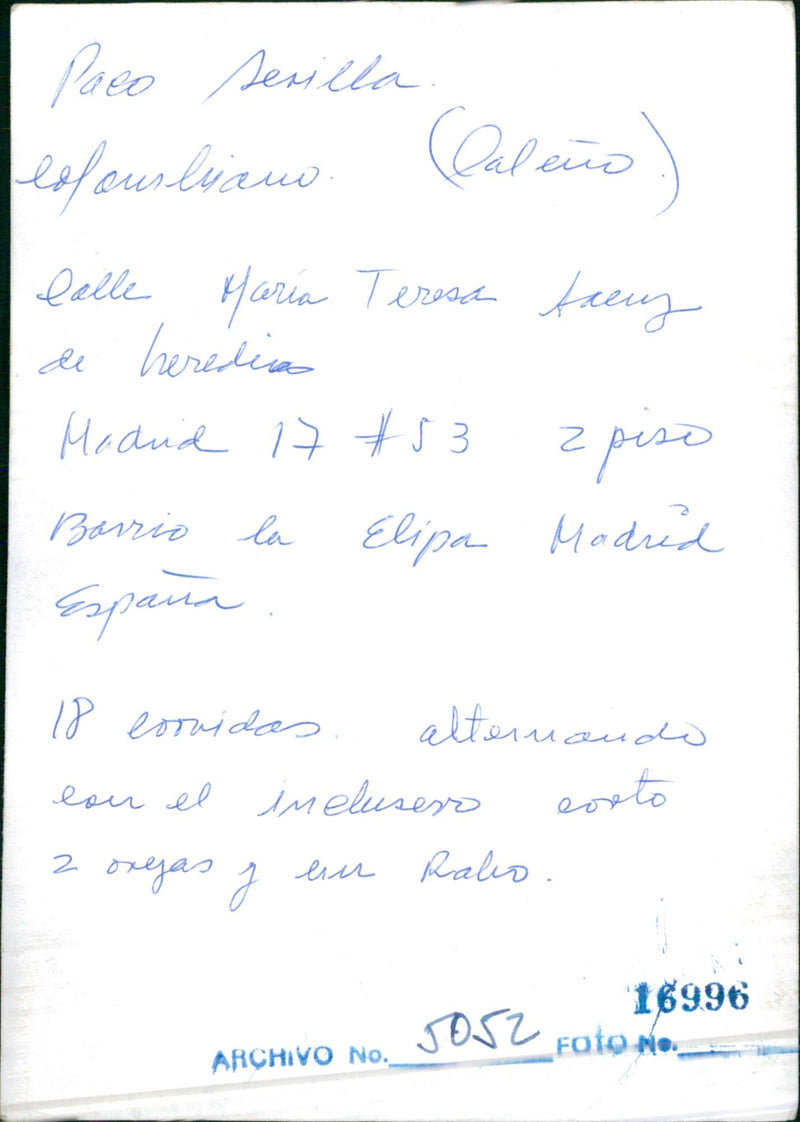 Paco Sevilla.
Colombiano. (Caleño.)
Calle María Teresa Saenz
de heredia
Madrid 17 #53 2 piso
Barrio la Elipa Madrid
España.
18 corridas. alternando
con el inclusero corto
2 orejas y un Rabo.
16996
ARCHIVO No. 5052 FOTO No.